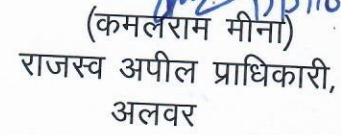 (कमलराम मीना)
राजस्व अपील प्राधिकारी,
अलवर